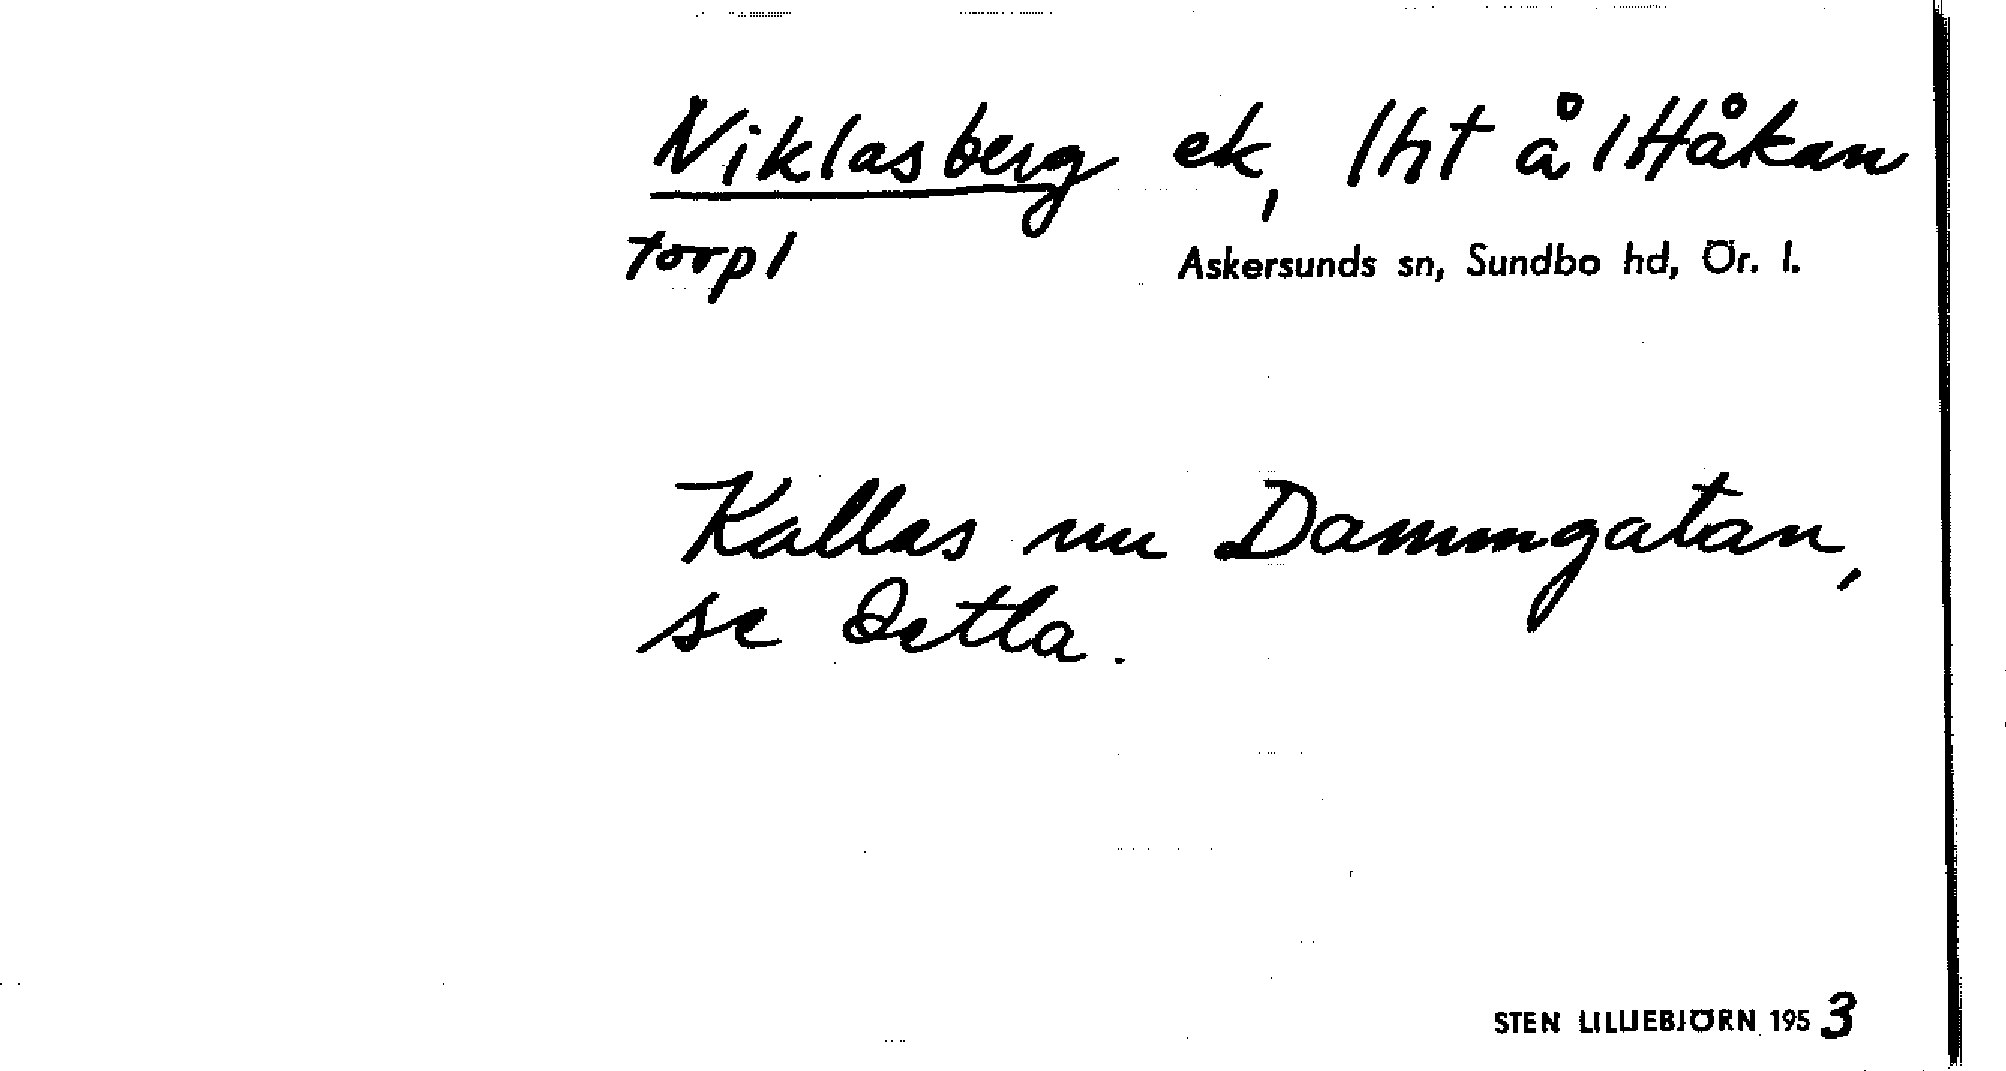 Niklasberg ek, lht å 1 Håkan
torp 1
Askersunds sn, Sundbo hd, Ör. l.
Kallas nu Dammgatan,
se detta.
STEN LILLIEBJÖRN 1953